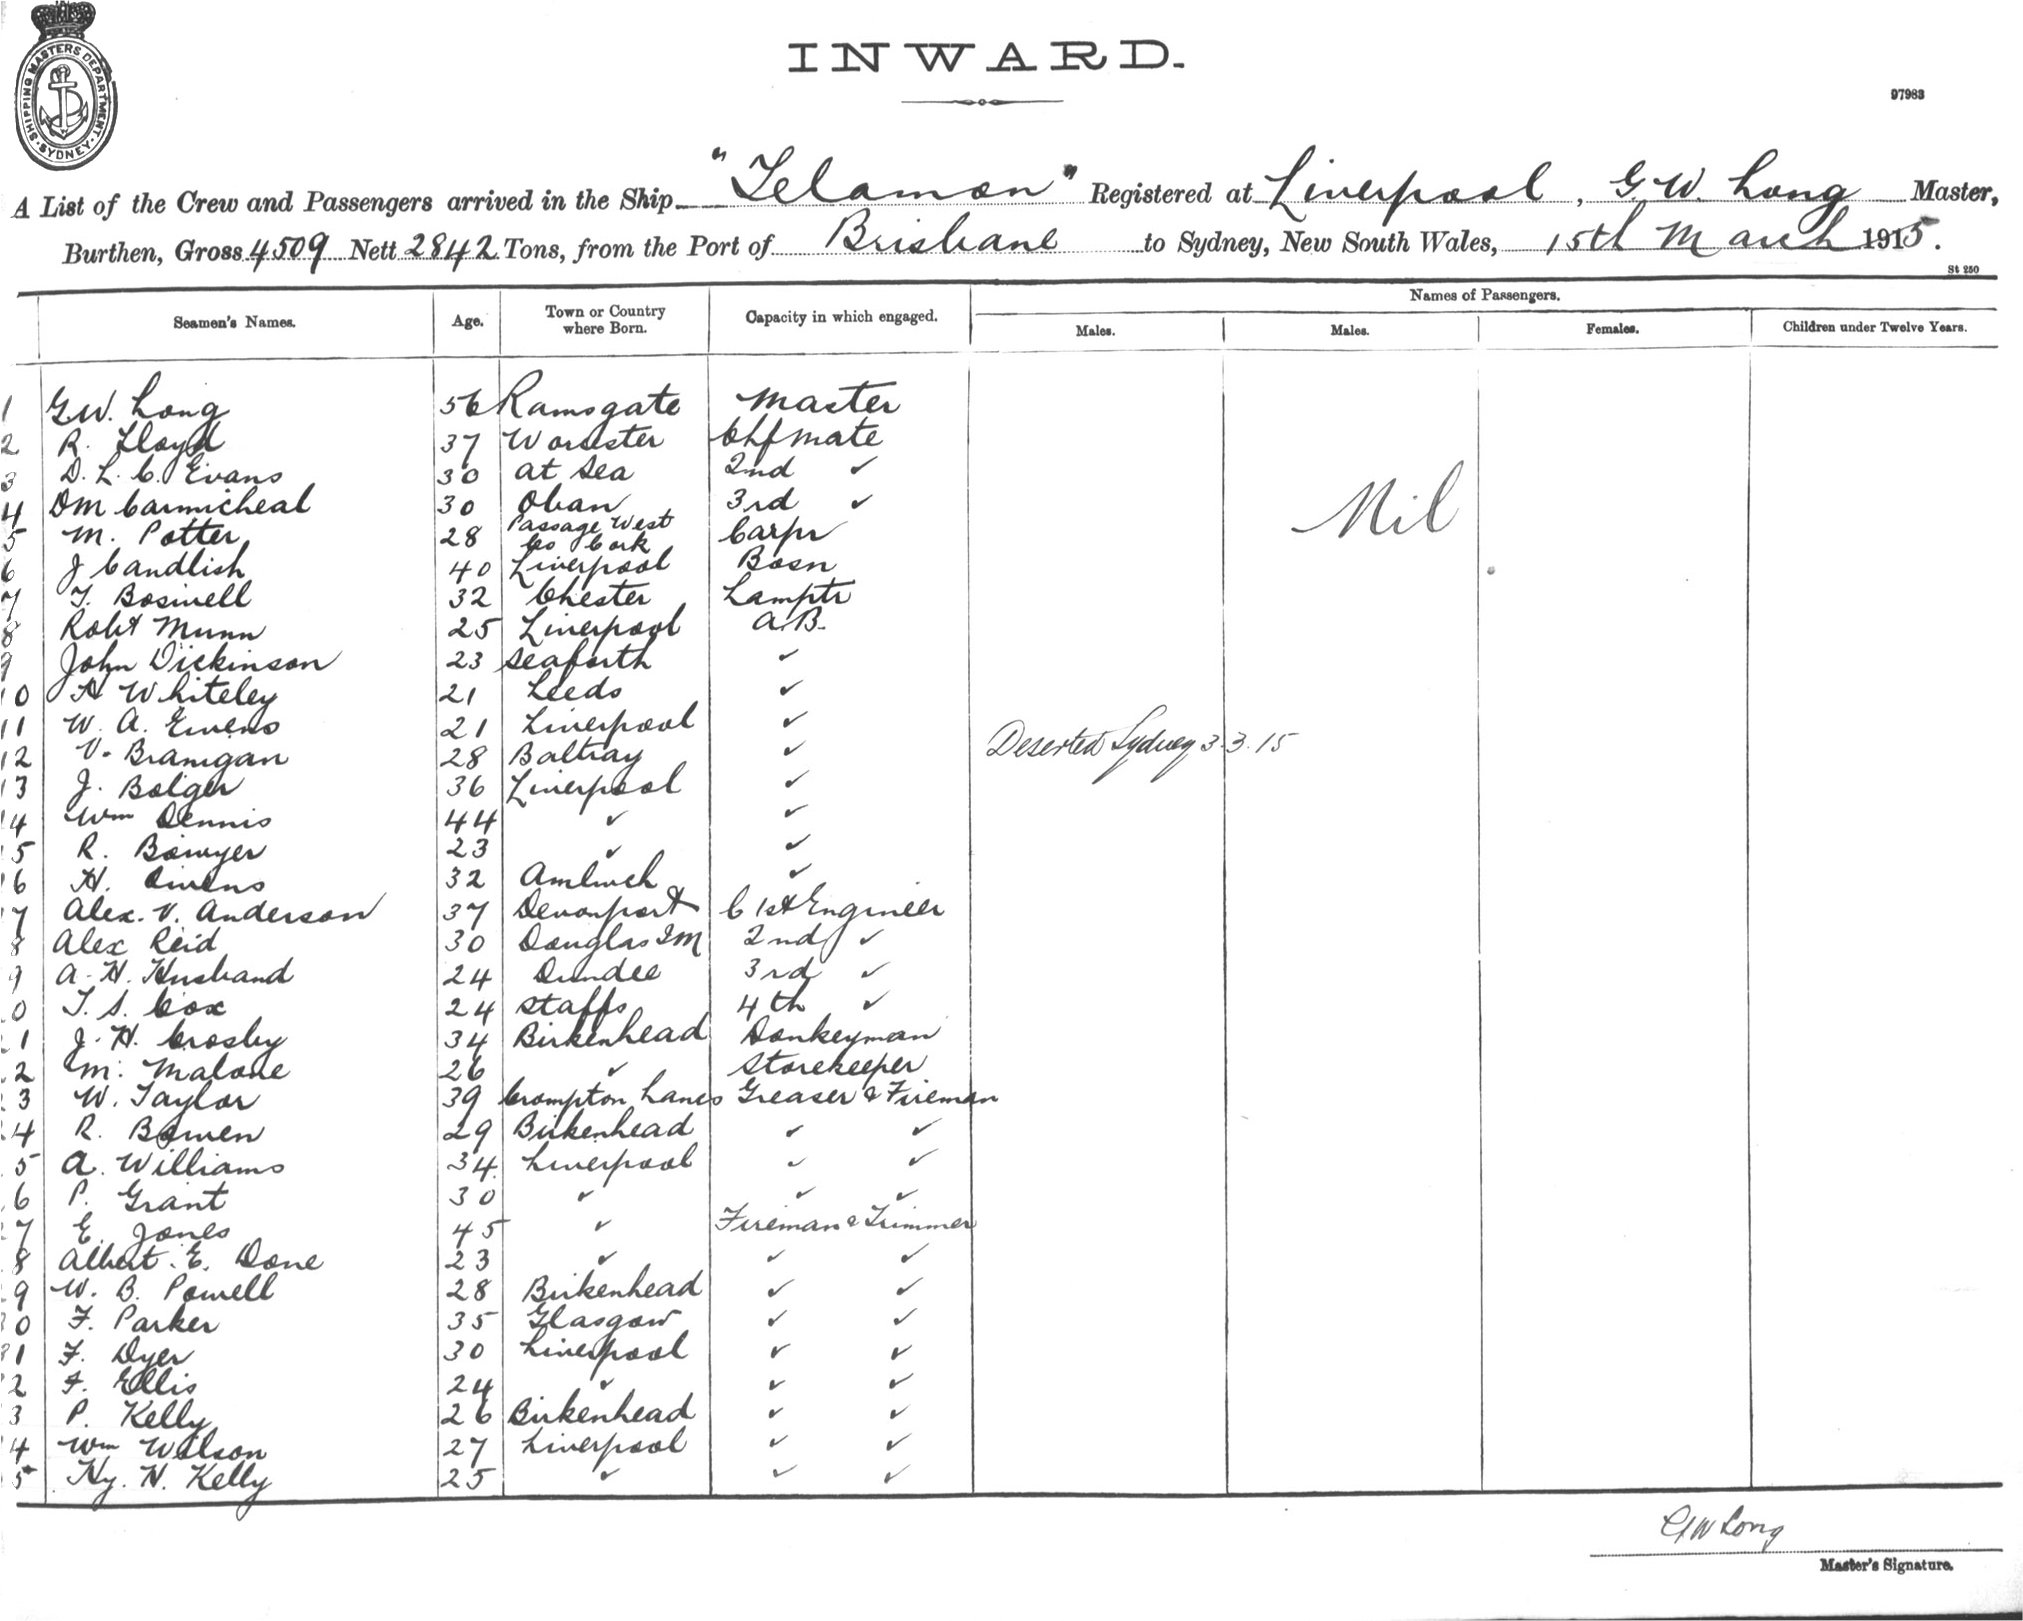 SHIPPING MASTERS DEPARTMENT. SYDNEY
INWARD.
97983
A List of the Crew and Passengers arrived in the Ship "Telamon" Registered at Liverpool, G.W. Long Master,
Burthen, Gross 4509 Nett 2842 Tons, from the Port of Brisbane to Sydney, New South Wales, 15th March 1915.
St 250
Names of Passengers.
Seamen's Names. Age. Town or Country where Born. Capacity in which engaged. Males. Males. Females. Children under Twelve Years.
1 G.W. Long 56 Ramsgate Master
2 R. Lloyd 37 Worcester Chf Mate
3 D. L. C. Evans 30 at Sea 2nd ✓
4 D M Carmicheal 30 Oban 3rd ✓ Nil
5 M. Potter 28 Passage West Co Cork Carpr
6 J Candlish 40 Liverpool Bosn
7 T. Boswell 32 Chester Lamptr
8 Robt Munn 25 Liverpool A.B.
9 John Dickinson 23 Seaforth ✓
10 H Whiteley 21 Leeds ✓
11 W. A. Ewens 21 Liverpool ✓
12 V. Branigan 28 Baltray ✓ Deserted Sydney 3.3.15
13 J. Bolger 36 Liverpool ✓
14 Wm Dennis 44 ✓ ✓
15 R. Bowyer 23 ✓ ✓
16 H. Owens 32 Amlwch ✓
7 Alex. V. Anderson 37 Devonport C 1st Engineer
8 Alex Reid 30 Douglas I M 2nd ✓
9 A. H. Husband 24 Dundee 3rd ✓
0 T. S. Cox 24 Staffs 4th ✓
1 J. H. Crosby 34 Birkenhead Donkeyman
2 M. Malone 26 ✓ Storekeeper
3 W. Taylor 39 Crompton Lancs Greaser & Fireman
4 R. Bowen 29 Birkenhead ✓ ✓
5 A. Williams 34 Liverpool ✓ ✓
6 P. Grant 30 ✓ ✓ ✓
7 E. Jones 45 ✓ Fireman & Trimmer
8 Albert. E. Done 23 ✓ ✓ ✓
9 W. B. Powell 28 Birkenhead ✓ ✓
0 F. Parker 35 Glasgow ✓ ✓
31 F. Dyer 30 Liverpool ✓ ✓
2 F. Ellis 24 ✓ ✓ ✓
3 P. Kelly 26 Birkenhead ✓ ✓
4 Wm Wilson 27 Liverpool ✓ ✓
5 Hy. H. Kelly 25 ✓ ✓ ✓
GW Long
Master's Signature.